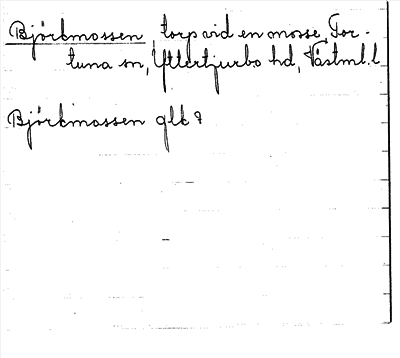 Björkmossen, torp vid en mosse, Tor-
tuna sn, Yttertjurbo hd, Västml. l.
Björkmossen glk?